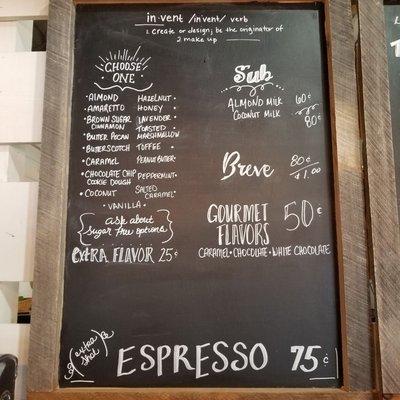 in·vent /in'vent/ verb
1. create or design; be the originator of
2. make up
CHOOSE
ONE
• ALMOND
• AMARETTO
• BROWN SUGAR
CINNAMON
• BUTTER PECAN
• BUTTERSCOTCH
• CARAMEL
• CHOCOLATE CHIP
COOKIE DOUGH
• COCONUT
HAZELNUT •
HONEY •
LAVENDER •
TOASTED •
MARSHMALLOW
TOFFEE •
PEANUT BUTTER •
PEPPERMINT •
SALTED
CARAMEL •
• VANILLA •
ask about
sugar free options
EXTRA FLAVOR 25¢
Sub
ALMOND MILK 60¢
COCONUT MILK 80¢
Breve 80¢
$1.00
GOURMET
FLAVORS 50¢
CARAMEL • CHOCOLATE • WHITE CHOCOLATE
extra
shot
ESPRESSO 75¢